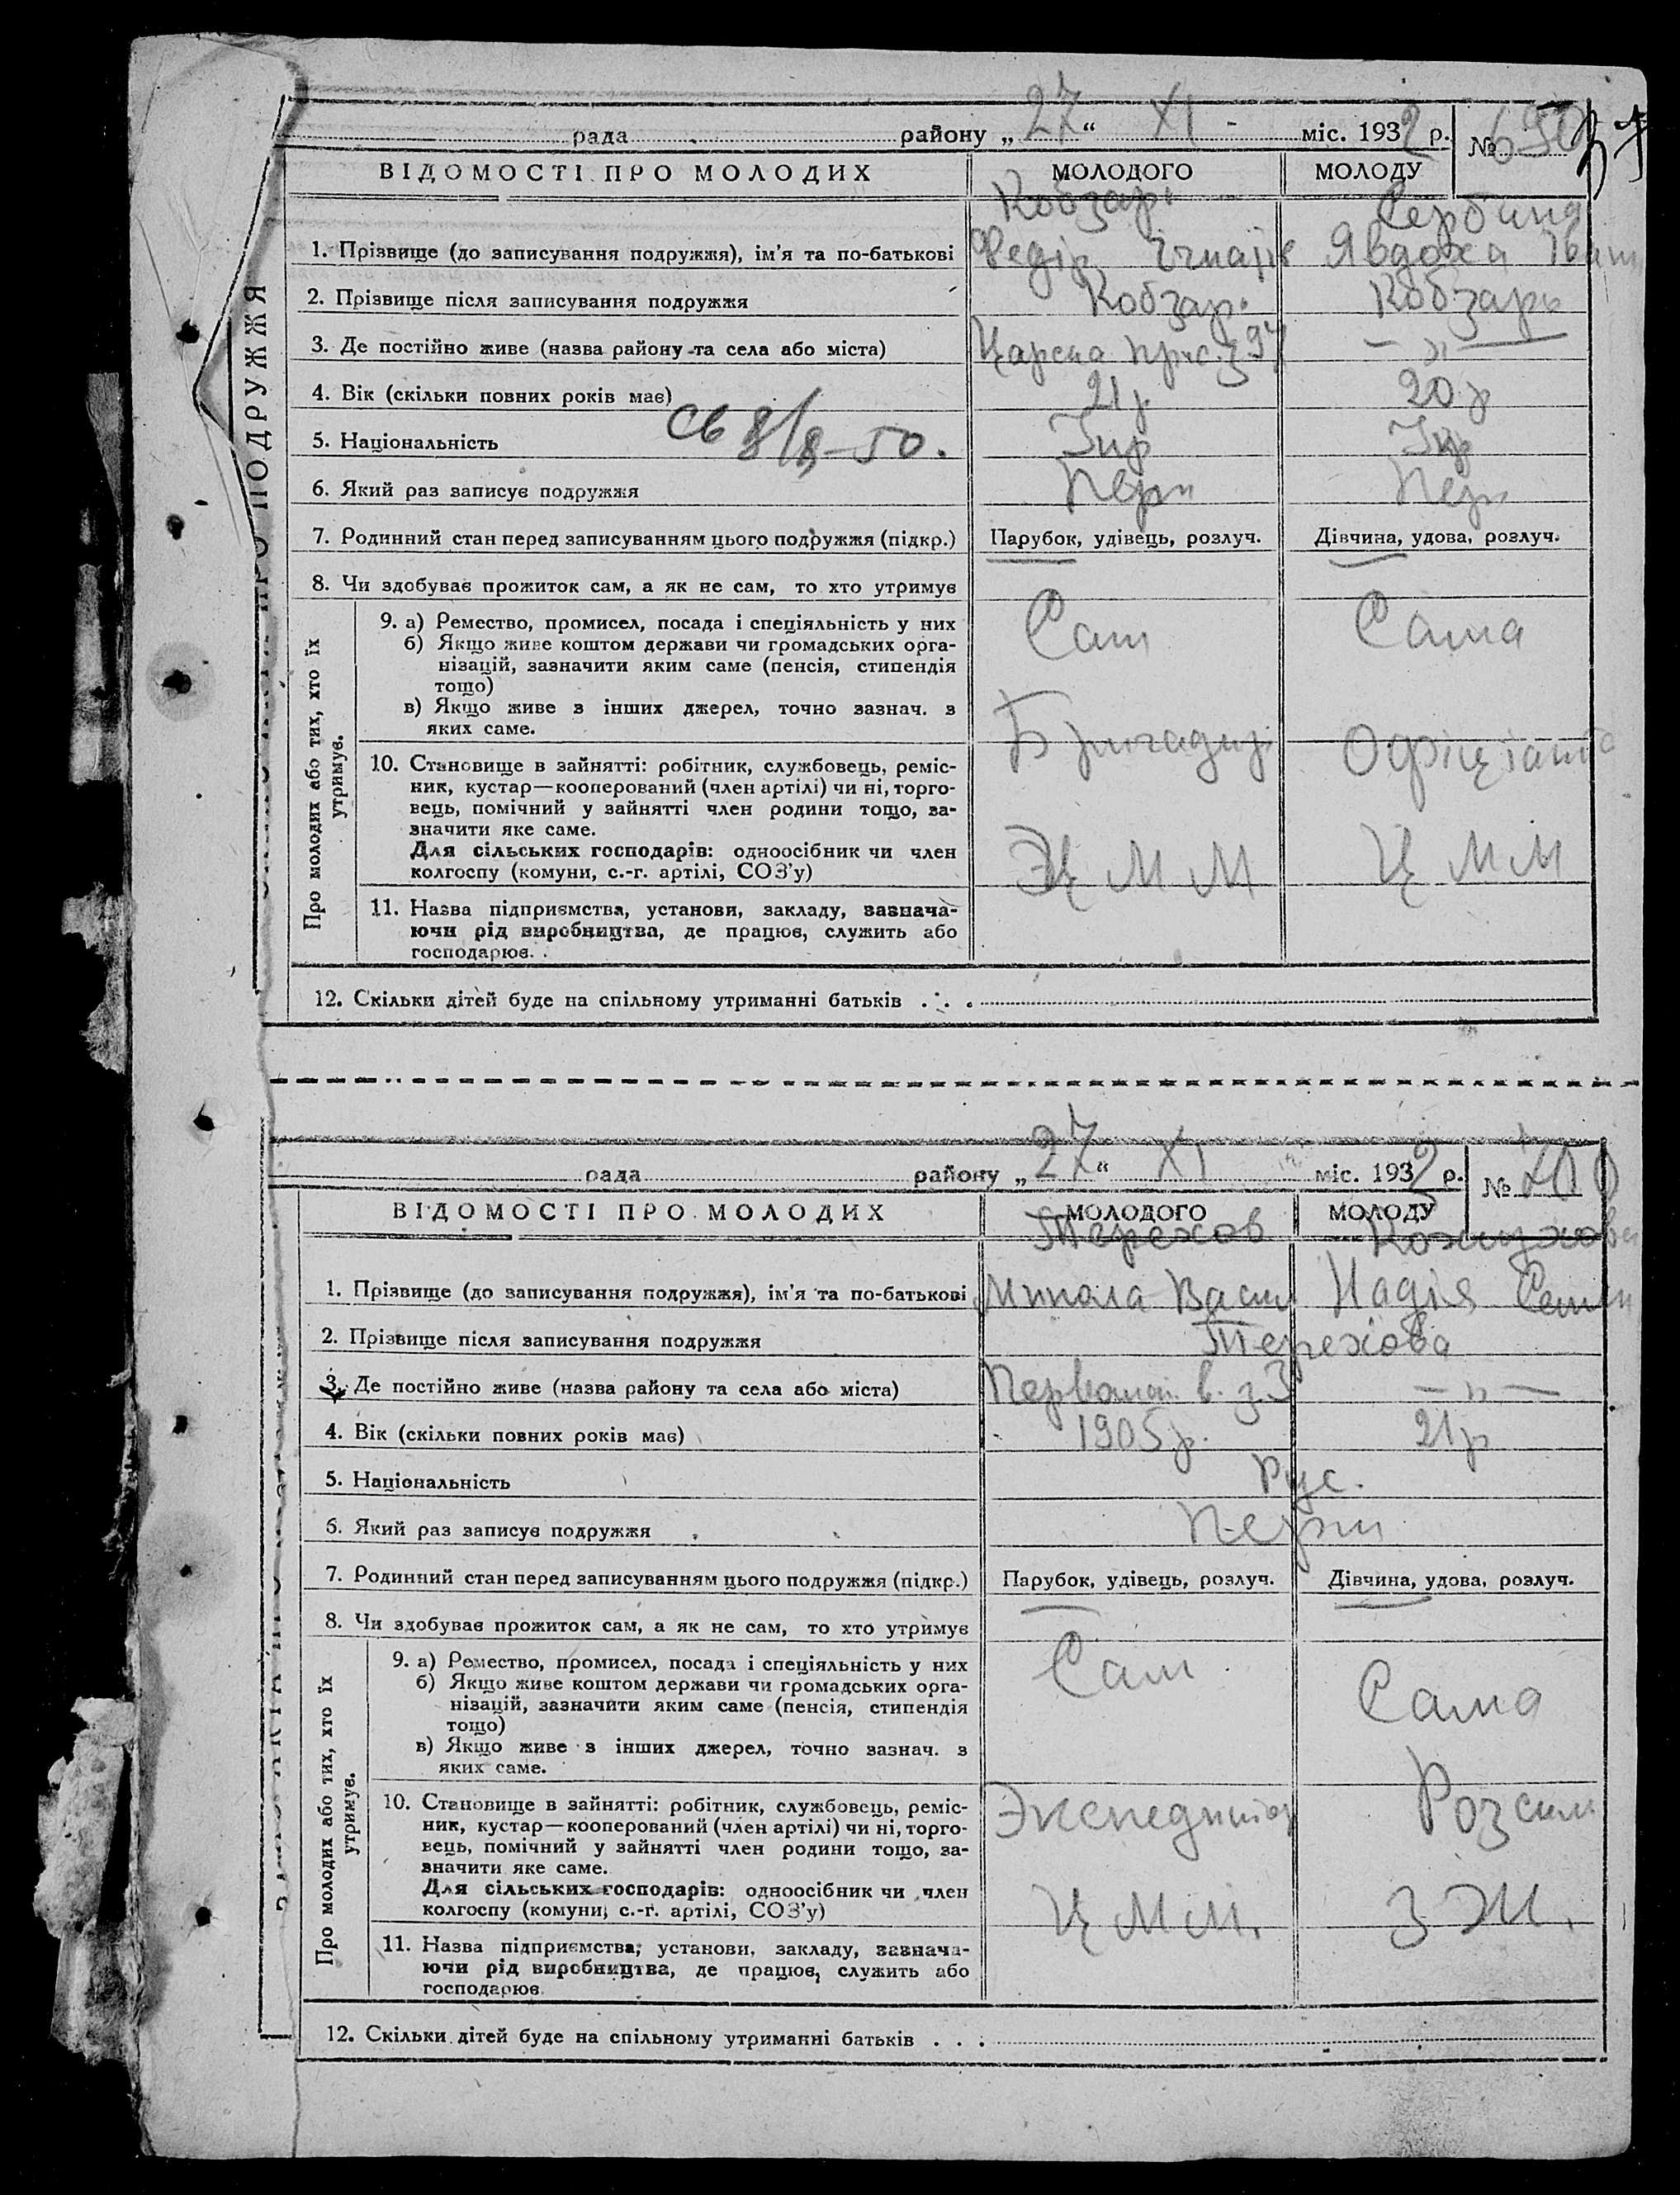 рада района „27“ XI - міс. 1932 р. №
ВІДОМОСТІ ПРО МОЛОДИХ МОЛОДОГО МОЛОДУ
Кобзарь Сербина
1. Прізвище (до записування подружжя), ім'я та по-батькові Федір Явдоха Іван
2. Прізвище після записування подружжя Кобзарь Кобзарь
3. Де постійно живе (назва району та села або міста) Царска — „ —
4. Вік (скільки повних років має) 21 р. 20 р
5. Національність Укр Укр
Св 8/8-50.
6. Який раз записує подружжя Перш Перш
7. Родинний стан перед записуванням цього подружжя (підкр.) Парубок, удівець, розлуч. Дівчина, удова, розлуч.
8. Чи здобуває прожиток сам, а як не сам, то хто утримує Сам Сама
Про молодих або тих, хто їх утримує.
9. а) Ремество, промисел, посада і спеціяльність у них
б) Якщо живе коштом держави чи громадських орга-
нізацій, зазначити яким саме (пенсія, стипендія
тощо)
в) Якщо живе з інших джерел, точно зазнач. з
яких саме.
Бригадир Офіціант
10. Становище в зайнятті: робітник, службовець, реміс-
ник, кустар—кооперований (член артілі) чи ні, торго-
вець, помічний у зайнятті член родини тощо, за-
значити яке саме.
Для сільських господарів: одноосібник чи член
колгоспу (комуни, с.-г. артілі, СОЗ'у)
ЦММ ЦММ
11. Назва підприємства, установи, закладу, зазнача-
ючи рід виробництва, де працює, служить або
господарює.
12. Скільки дітей буде на спільному утриманні батьків . . .
ПОДРУЖЖЯ
рада району „27“ XI міс. 1932 р. № 700
ВІДОМОСТІ ПРО МОЛОДИХ МОЛОДОГО МОЛОДУ
Терехов Кожухова
1. Прізвище (до записування подружжя), ім'я та по-батькові Микола Васил Надія Семен
2. Прізвище після записування подружжя Терехова
3. Де постійно живе (назва району та села або міста) Первомай. в. з. 3 — „ —
4. Вік (скільки повних років має) 1905 р. 21 р
5. Національність Рус.
6. Який раз записує подружжя Перш
7. Родинний стан перед записуванням цього подружжя (підкр.) Парубок, удівець, розлуч. Дівчина, удова, розлуч.
8. Чи здобуває прожиток сам, а як не сам, то хто утримує Сам Сама
Про молодих або тих, хто їх утримує.
9. а) Ремество, промисел, посада і спеціяльність у них
б) Якщо живе коштом держави чи громадських орга-
нізацій, зазначити яким саме (пенсія, стипендія
тощо)
в) Якщо живе з інших джерел, точно зазнач. з
яких саме.
Экспедитор Розсил
10. Становище в зайнятті: робітник, службовець, реміс-
ник, кустар—кооперований (член артілі) чи ні, торго-
вець, помічний у зайнятті член родини тощо, за-
значити яке саме.
Для сільських господарів: одноосібник чи член
колгоспу (комуни, с.-г. артілі, СОЗ'у)
ЦММ.
11. Назва підприємства, установи, закладу, зазнача-
ючи рід виробництва, де працює, служить або
господарює
12. Скільки дітей буде на спільному утриманні батьків . . .